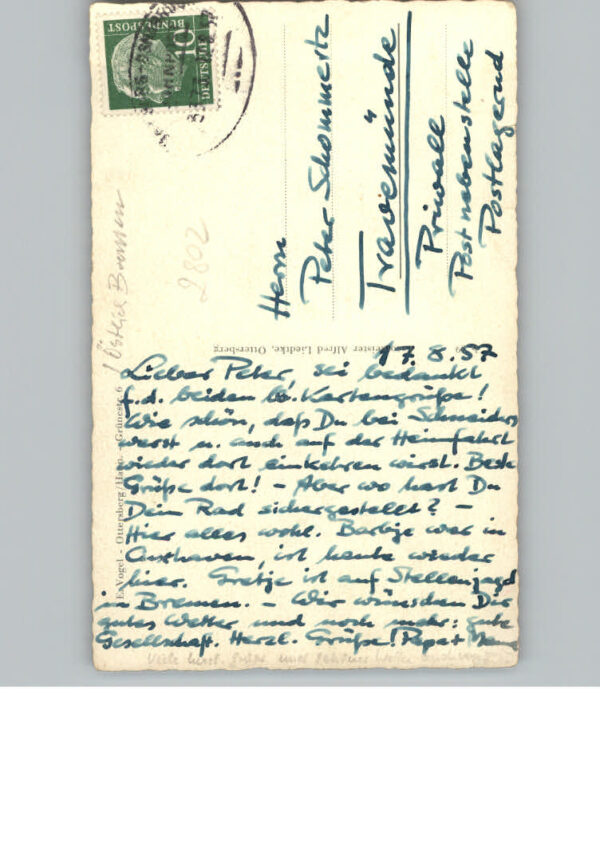 DEUTSCHE
BUNDESPOST
10
Herrn
Peter Schommertz
Travemünde
Priwall
Postnebenstelle
Postlagernd
(Östlich Bremen
2802
meister Alfred Liedtke, Ottersberg
E. Vogel - Ottersberg/Hann. - Grünestr. 6
17.8.57
Lieber Peter, sei bedankt
f.d. beiden lb. Kartengrüße!
Wie schön, daß Du bei Schneiders
warst u. auch auf der Heimfahrt
wieder dort einkehren wirst. Beste
Grüße dort! - Aber wo hast Du
Dein Rad sichergestellt? -
Hier alles wohl. war in
Cuxhaven, ist heute wieder
hier. Gretje ist auf Stellenjagd
in Bremen. - Wir wünschen Dir
gutes Wetter und noch mehr: gute
Gesellschaft. Herzl. Grüße!